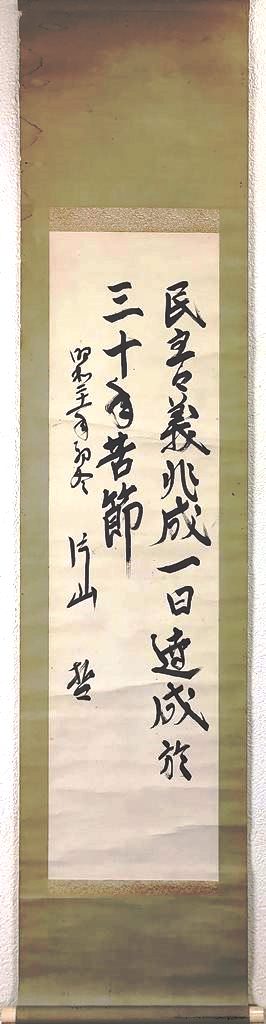 民主々義非成一日達成於
三十年苦節
昭和二十一年初冬 片山 哲